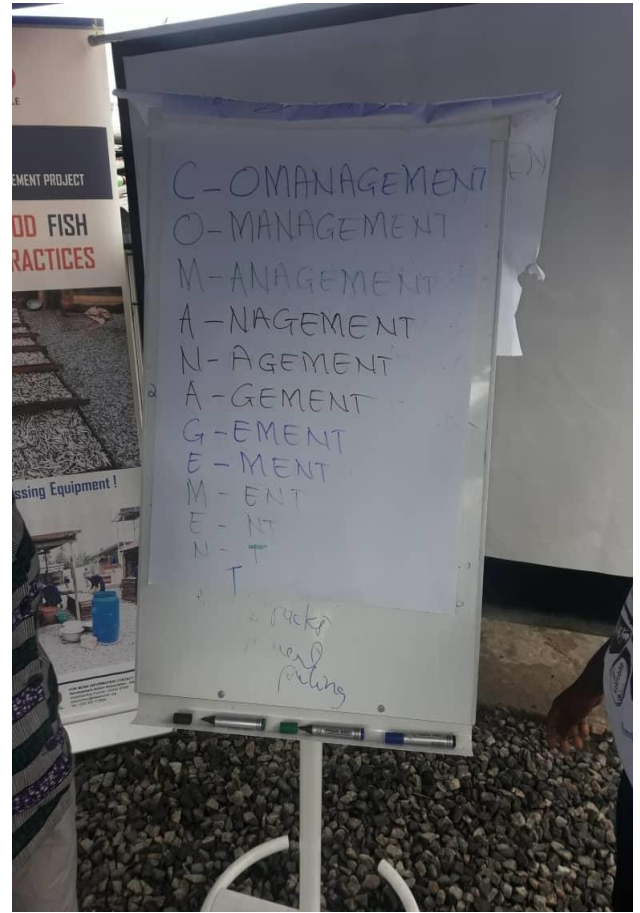 LE
EMENT PROJECT
OD FISH
RACTICES
ssing Equipment !
EN
C - OMANAGEMENT
O - MANAGEMENT
M - ANAGEMENT
A - NAGEMENT
N - AGEMENT
A - GEMENT
G - EMENT
E - MENT
M - ENT
E - NT
N - T
T
FOR MORE INFORMATION CONTACT